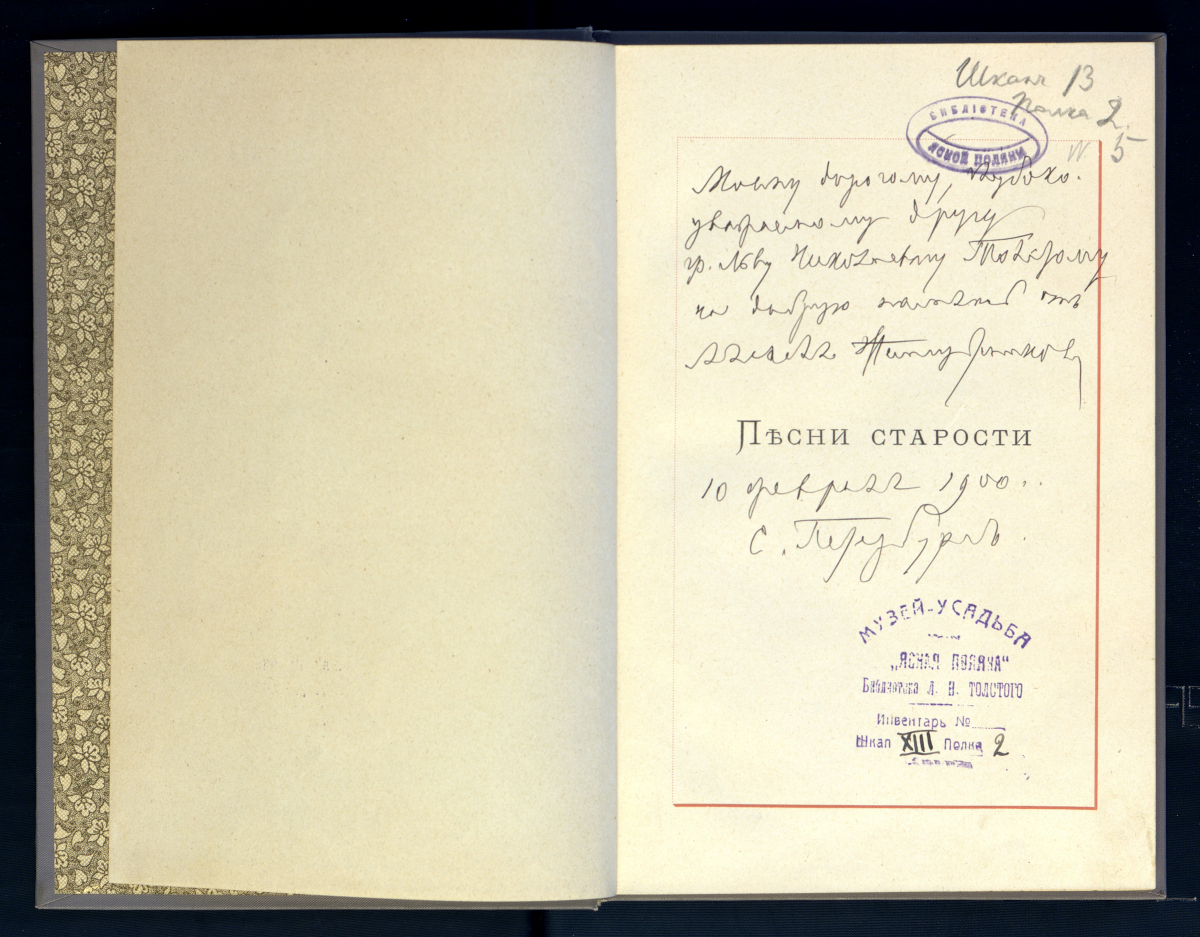 Шкапъ 13
Полка 2.
N 5
БИБЛІОТЕКА
ЯСНОЙ ПОЛЯНЫ
Моему дорогому, глубоко-
уважаемому другу
гр. Льву Николаевичу Толстому
на добрую память отъ
Жемчужникова
Пѣсни старости
10 февраля 1900..
С. Петербургъ.
МУЗЕЙ-УСАДЬБА
„ЯСНАЯ ПОЛЯНА“
Библиотека Л. Н. ТОЛСТОГО
Инвентарь №
Шкап XIII Полка 2